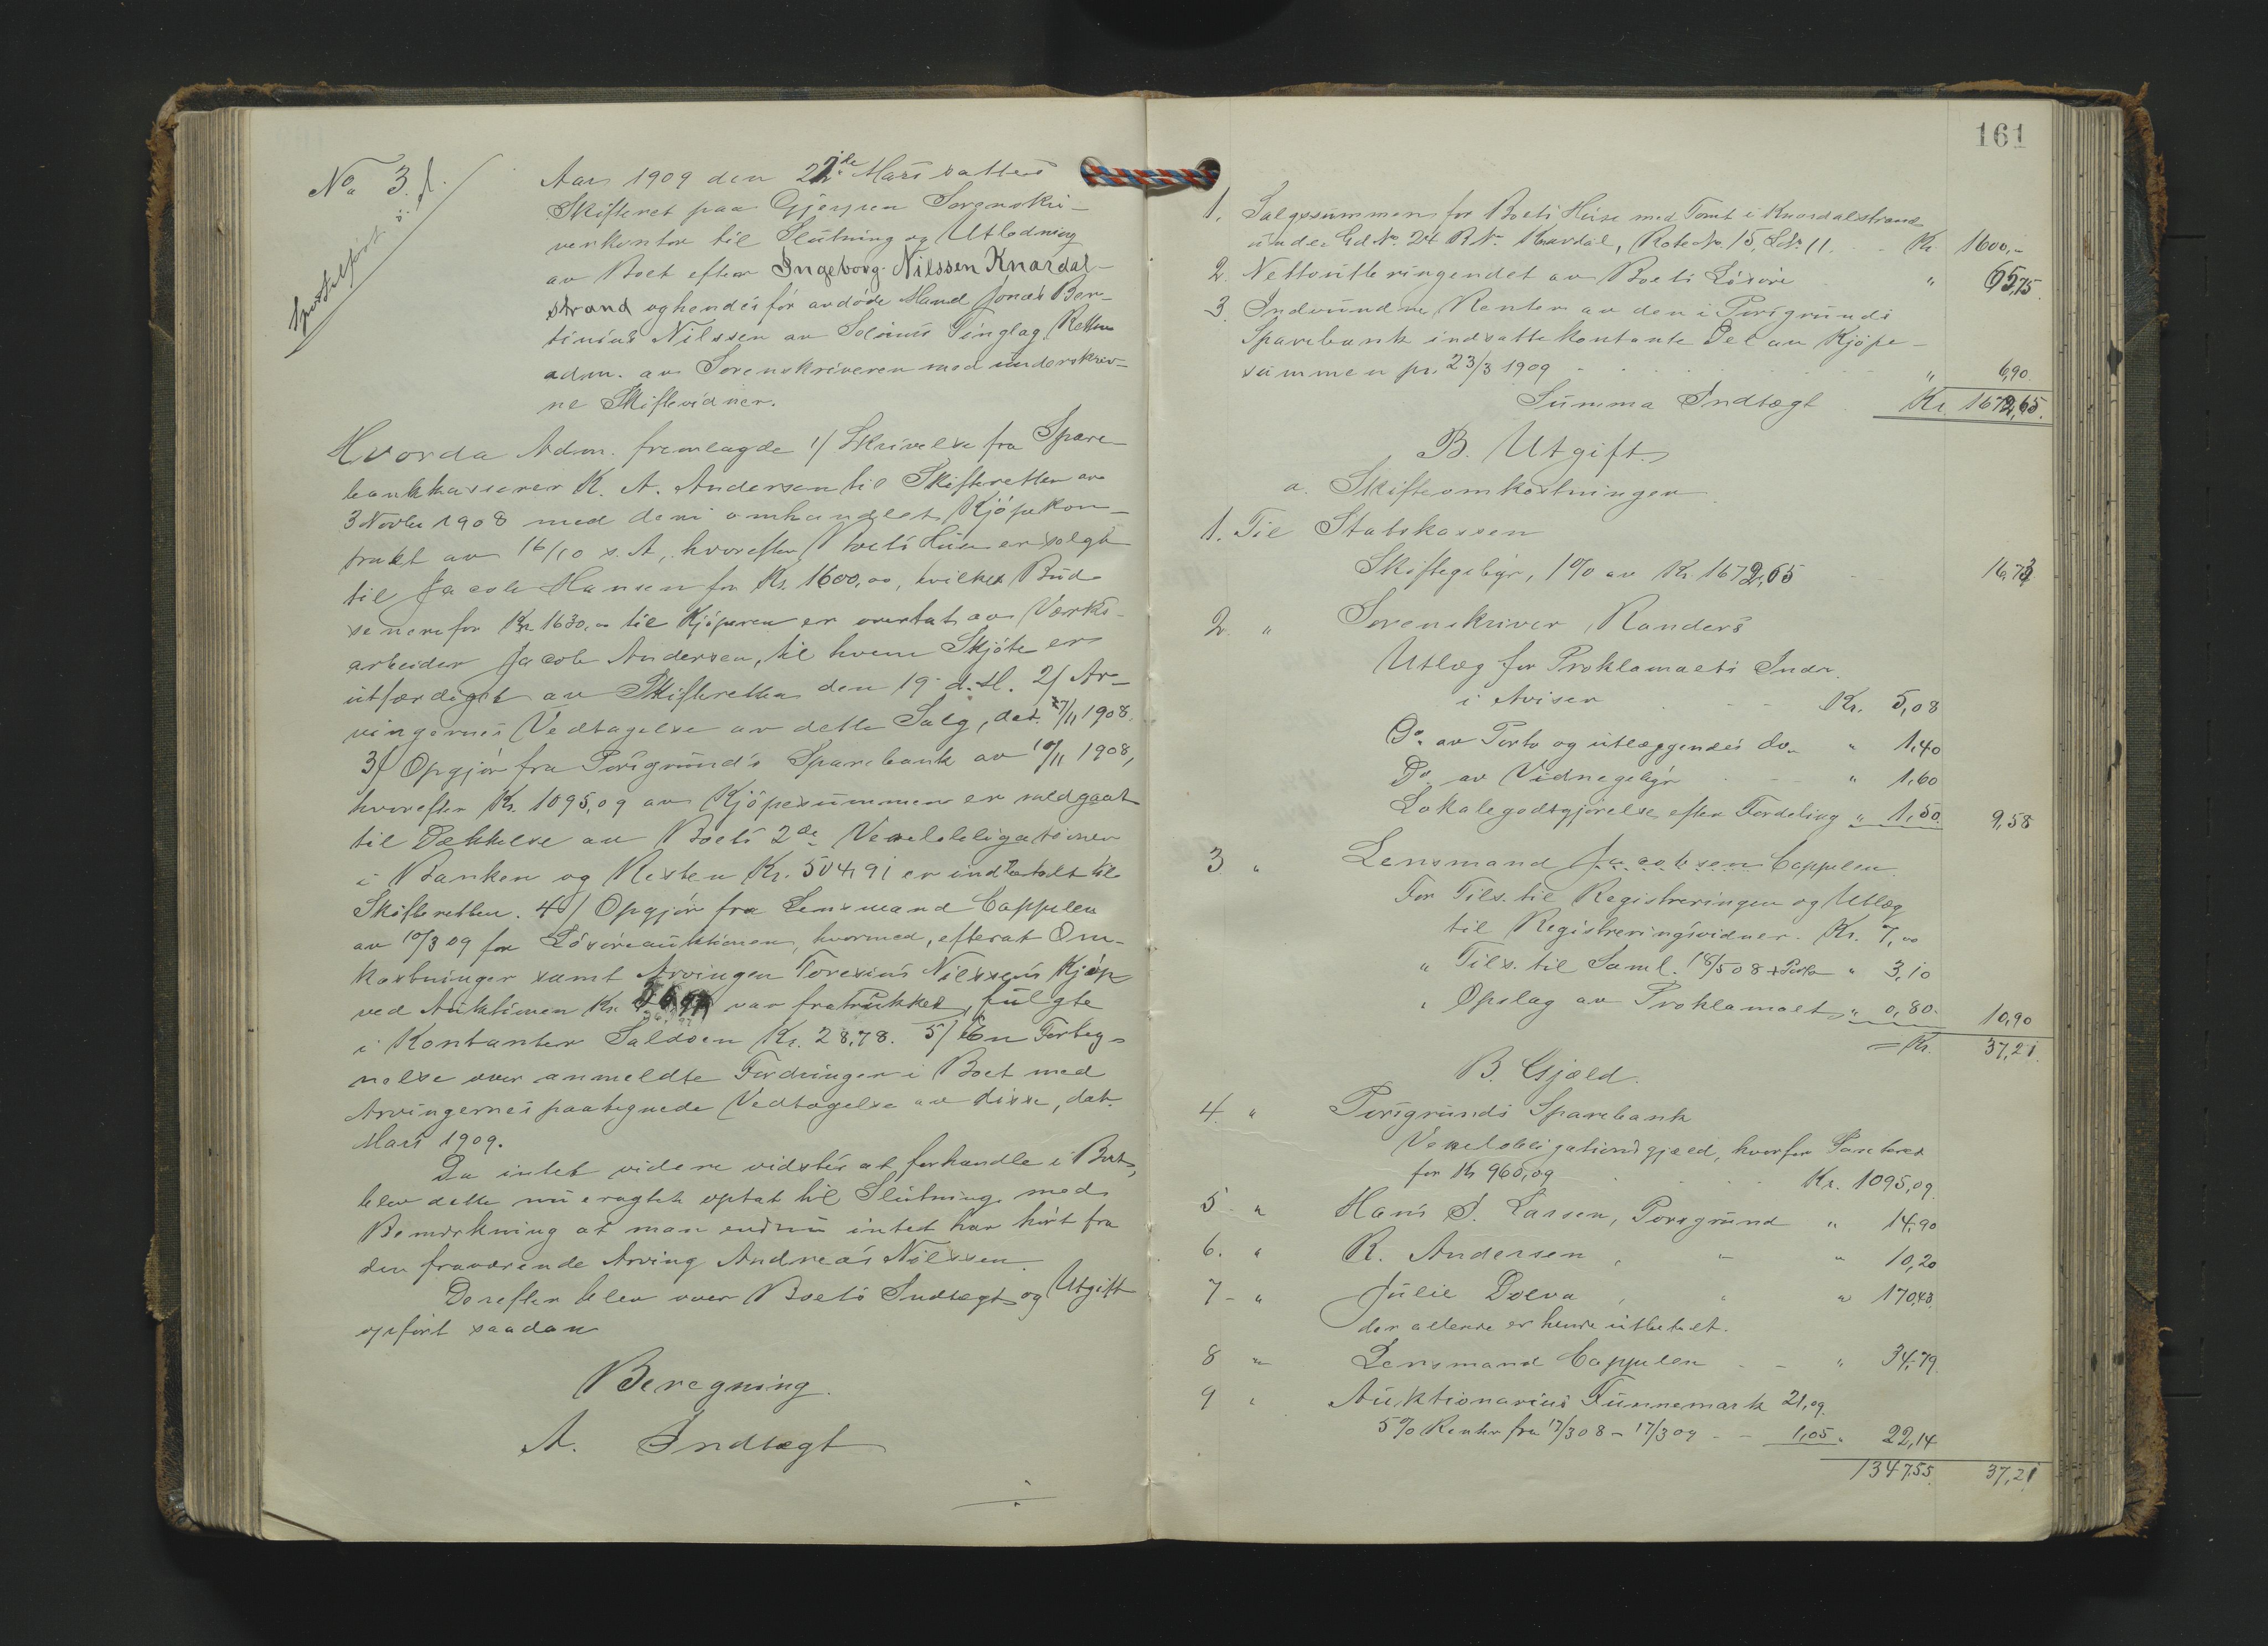 No 3.
Sportelført
Aar 1909 den 22de Mars sattes
Skifteret paa Gjerpen Sorenskri-
verkontor til Slutning og Utlodning
av Boet efter Ingeborg Nilssen Knardal-
strand og hendes før avdøde Mand Jonas Ber-
tinius Nilssen av Solums Tinglag. Retten
adm. av Sorenskriveren med underskrev-
ne Skiftevidner.
Hvorda Adm. fremlagde 1/ Skrivelse fra Spare-
bankkasserer K. A. Andersen til Skifteretten av
3 Novbr 1908 med deri omhandlet Kjøpekon-
trakt av 16/10 s. A., hvorefter Boets Hus er solgt
til Jacob Hansen for Kr. 1600,00, hvilket Bud
senere for Kr. 1630,00 til Kjøperen er overtat av Verks-
arbeider Jacob Andersen, til hvem Skjøte er
utfærdiget av Skifteretten den 19 d. M. 2/ Ar-
vingernes Vedtagelse av dette Salg, dat. 7/11 1908.
3/ Opgjør fra Porsgrunds Sparebank av 10/11 1908,
hvorefter Kr. 1095,09 av Kjøpesummen er medgaat
til Dækkelse av Boets 2de Vexelobligationer
i Banken og Resten Kr. 504,91 er indbetalt til
Skifteretten. 4/ Opgjør fra Lensmand Cappelen
av 10/3 09 for Løsøreauktionen, hvormed, efterat Om-
kostninger samt Arvingen Toresius Nilssens Kjøp
ved Auktionen Kr. var fratrukket, fulgte
i Kontanter Saldoen Kr. 28,78. 5/ En Forteg-
nelse over anmeldte Fordringer i Boet med
Arvingernes paategnede Vedtagelse av disse, dat.
Mars 1909.
Da intet videre vidstes at forhandle i Boet,
blev dette nu eragtet optat til Slutning med
Bemerkning at man endnu intet har hørt fra
den fraværende Arving Andreas Nilssen.
Derefter blev over Boets Indtægt og Utgift
opført saadan
Beregning.
A. Indtægt
161
1. Salgssummen for Boets Huse med Tomt i Knardalstrand
under Gd No. 24 B.N. Knardal, Rode No. 15, L.No. 11. - - Kr. 1600,-
2. Nettoutbringendet av Boets Løsøre " 65,75.
3. Indvundne Renter av den i Porsgrunds
Sparebank indsatte kontante Del av Kjøpe-
summen pr. 23/3 1909 " 6,90
Summa Indtægt Kr. 1672,65.
B. Utgift.
a. Skifteomkostninger
1. Til Statskassen
Skiftegebyr, 1 % av Kr. 1672,65 16,73
2. " Sorenskriver Randers
Utlæg for Proklamaets Indr.
i Aviser - - Kr. 5,08
Do. av Porto og utlæggendes do. " 1,40
Do. av Vidnegebyr - - " 1,60
Lokalegodtgjørelse efter Fordeling " 1,50. 9,58
3 " Lensmand Jacobsen Cappelen.
For Tils. til Registreringen og Utlæg
til Registreringsvidner. Kr. 7,00
" Tils. til Saml. 18/5 08 + Porto " 3,10
" Opslag av Proklamaet " 0,80. 10,90
= Kr. 37,21.
B. Gjæld.
4. " Porsgrunds Sparebank
Vexelobligationsgjæld, hvorfor Panteret
for Kr 960,09 Kr. 1095,09.
5 - " Hans S. Larsen, Porsgrund " 14,90
6. " R. Andersen, " " 10,20
7 - " Julie Doeva, " " 170,43.
der allerede er hende utbetalt.
8 " Lensmand Cappelen - - " 34,79.
9 " Auktionarius Funnemark 21,09.
5 % Renter fra 17/3 08 - 17/3 09 - - 1,05 " 22,14
1347,55. 37,21